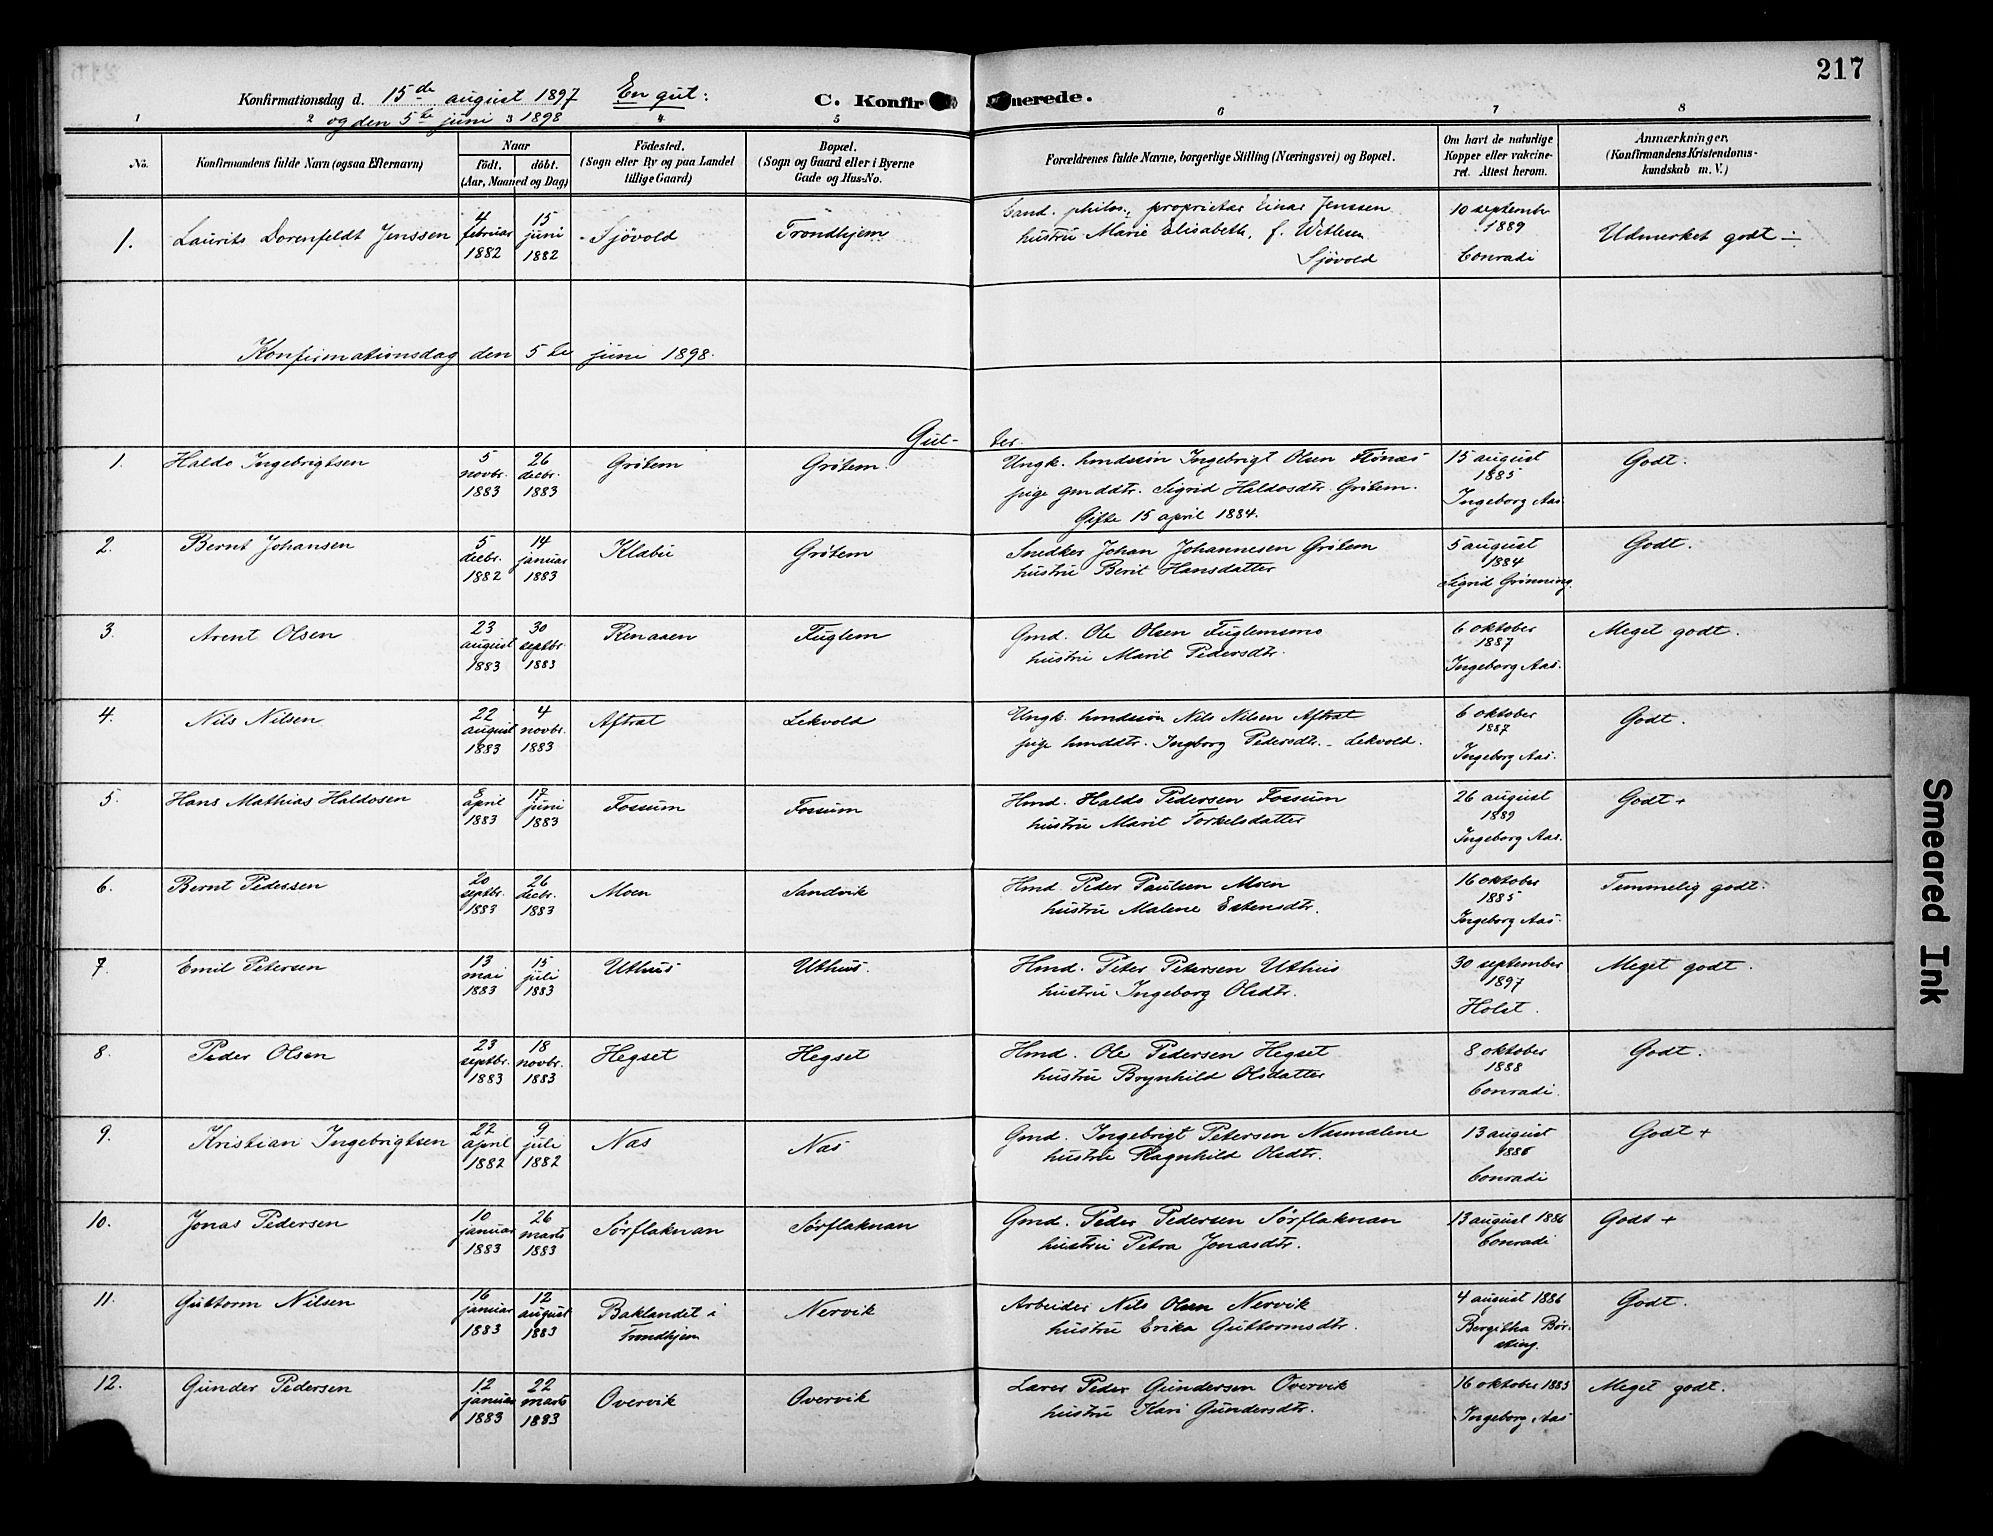 217
Konfirmationsdag d. 15de august 1897 En gut:
og den 5te juni 1898
C. Konfirmerede.
1 2 3 4 5 6 7 8
No.
Konfirmandens fulde Navn (ogsaa Efternavn)
Naar
født. døbt.
(Aar, Maaned og Dag)
Födested.
(Sogn eller By og paa Landet
tillige Gaard)
Bopæl.
(Sogn og Gaard eller i Byerne
Gade og Hus-No.
Forældrenes fulde Navne, borgerlige Stilling (Næringsvei) og Bopæl.
Om havt de naturlige
Kopper eller vakcine-
ret. Attest herom.
Anmærkninger,
(Konfirmandens Kristendoms-
kundskab m. V.)
1. Laurits Dorenfeldt Jenssen
4 februar 1882
15 juni 1882
Sjövold
Trondhjem
Cand. philos., proprietær Einar Jenssen
hustru Marie Elisabeth, f. Wetlesen
Sjövold
10 septembr 1889
Conradi
Udmerket godt -
Konfirmationsdag den 5te juni 1898.
Gut- ter.
1. Haldo Ingebrigtsen
5 novbr. 1883
26 decbr. 1883
Grötem
Grötem
Ungk. hmdssön Ingebrigt Olsen Flönæs
pige gmddtr. Sigrid Haldosdtr. Grötem.
Gifte 15 april 1884.
15 august 1885
Ingeborg Aas.
Godt.
2. Bernt Johansen
5 decbr. 1882
14 januar 1883
Klæbu
Grötem
Snedker Johan Johannesen Grötem
hustru Berit Hansdatter
5 august 1884
Sigrid Grönning.
Godt.
3. Arent Olsen
23 august 1883
30 septbr. 1883
Renaaen
Fuglem
Gmd. Ole Olsen Fuglemsmo
hustru Marit Pedersdtr.
6 oktober 1887
Ingeborg Aas.
Meget godt.
4. Nils Nilsen
22 august 1883
4 novbr. 1883
Aftret
Lekvold
Ungk. hmdssön Nils Nilsen Aftret
pige hmddtr. Ingborg Pedersdtr. - Lekvold.
6 oktober 1887
Ingeborg Aas.
Godt.
5. Hans Mathias Haldosen
8 april 1883
17 juni 1883
Fossum
Fossum
Hmd. Haldo Pedersen Fossum
hustru Marit Torkelsdatter
26 august 1889
Ingeborg Aas.
Godt +
6. Bernt Pedersen
20 septbr. 1883
26 decbr. 1883
Moen
Sandvik
Hmd. Peder Paulsen Moen
hustru Malene Estensdtr.
16 oktober 1885
Ingeborg Aas.
Temmelig godt.
7. Emil Petersen
13 mai 1883
15 juli 1883
Uthus
Uthus.
Hmd. Peter Petersen Uthus
hustru Ingeborg Olsdtr.
30 september 1897
Holst.
Meget godt.
8. Peder Olsen
23 septbr. 1883
18 novbr. 1883
Hegset
Hegset
Hmd. Ole Pedersen Hegset
hustru Brynhild Olsdatter
8 oktober 1888
Conradi.
Godt.
9. Kristian Ingebrigtsen
22 april 1882
9 juli 1882
Næs
Næs
Gmd. Ingebrigt Petersen Næsmælene
hustru Ragnhild Olsdtr.
13 august 1886
Conradi
Godt +
10. Jonas Pedersen
10 januar 1883
26 marts 1883
Sörflaknan
Sörflaknan
Gmd. Peder Pedersen Sörflaknan
hustru Petra Jonasdtr.
13 august 1886
Conradi
Godt +
11. Guttorm Nilsen
16 januar 1883
12 august 1883
Baklandet i
Trondhjem
Nervik
Arbeider Nils Olsen Nervik
hustru Erika Guttormsdtr.
4 august 1886
Bergitha Bör-
sting.
Godt.
12. Gunder Pedersen
12 januar 1883
22 marts 1883
Overvik
Overvik
Lærer Peder Gundersen Overvik
hustru Kari Gundersdtr.
16 oktober 1885
Ingeborg Aas
Meget godt.
Smeared Ink